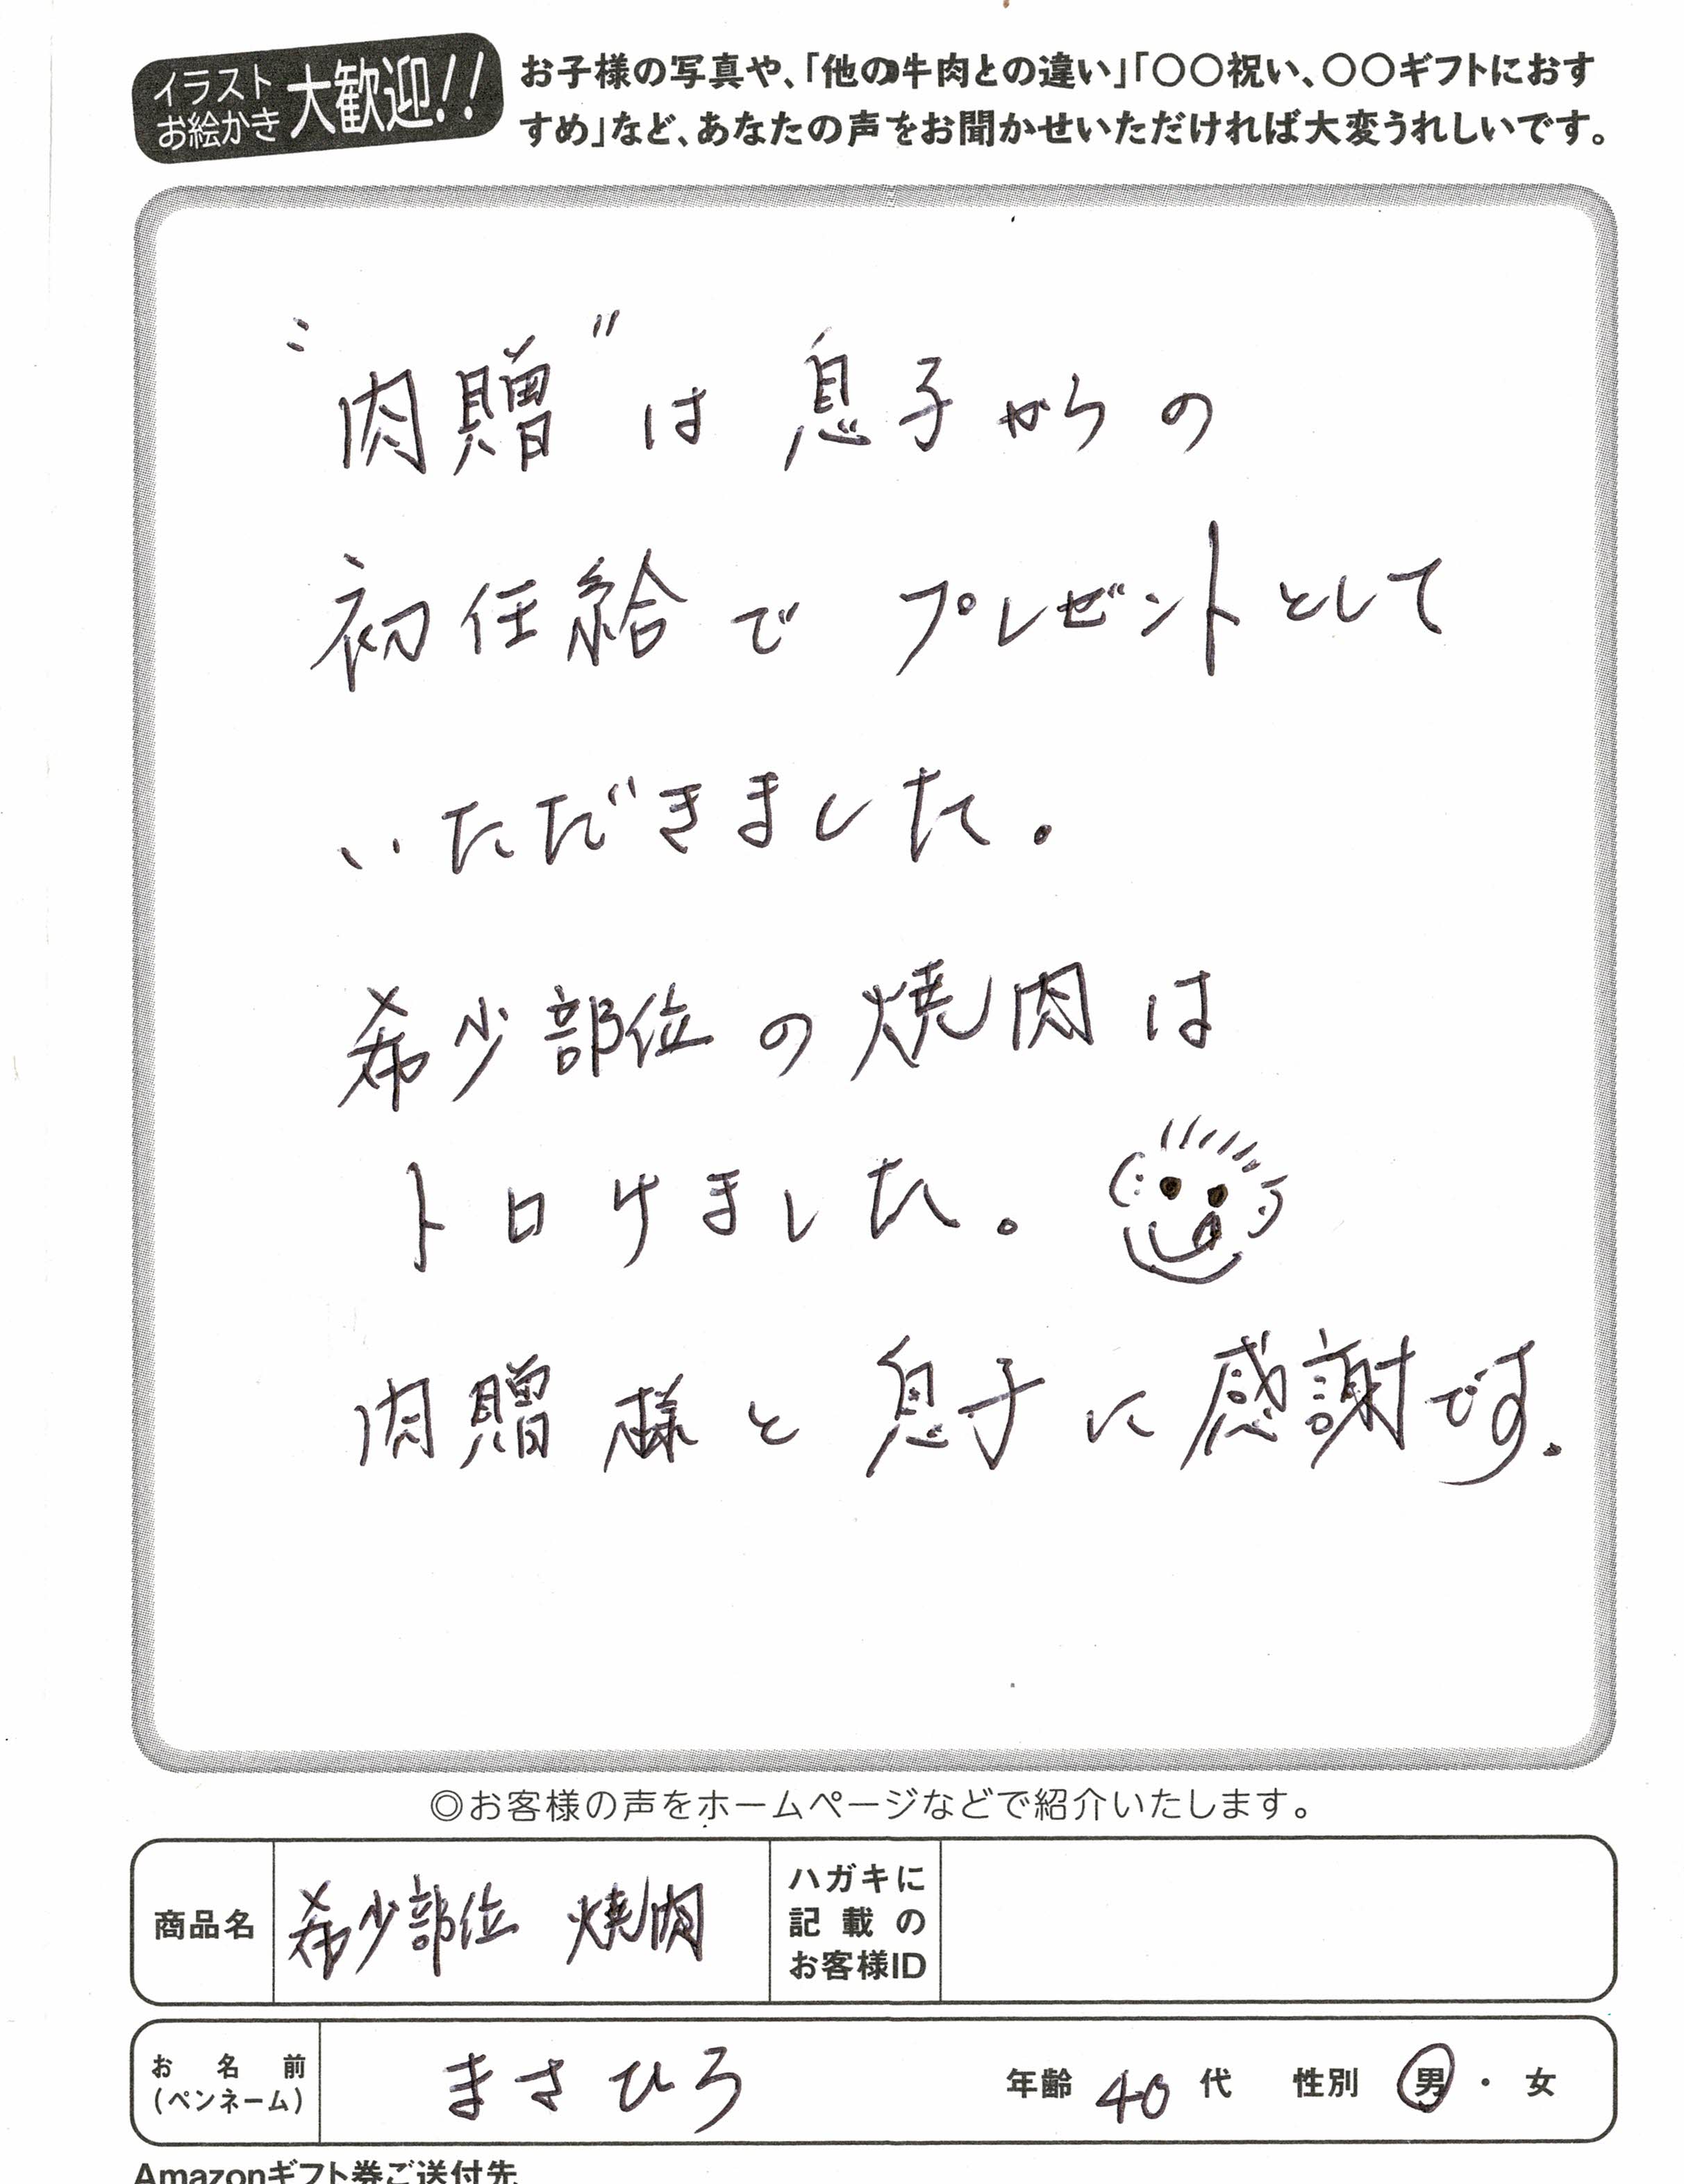 イラスト
お絵かき
大歓迎!!
お子様の写真や、「他の牛肉との違い」「〇〇祝い、〇〇ギフトにおす
すめ」など、あなたの声をお聞かせいただければ大変うれしいです。
"肉贈"は息子からの
初任給でプレゼントとして
いただきました。
希少部位の焼肉は
トロけました。
肉贈様と息子に感謝です.
◎お客様の声をホームページなどで紹介いたします。
商品名
希少部位 焼肉
ハガキに
記載の
お客様ID
お名前
(ペンネーム)
まさひろ
年齢 40 代 性別 男・女
Amazonギフト券ご送付先